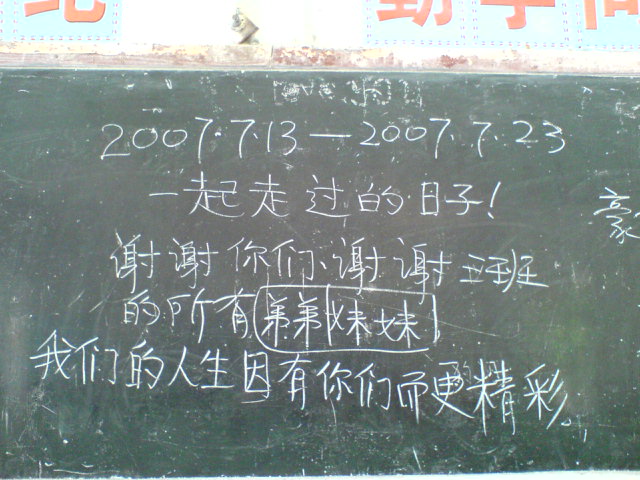 2007.7.13—2007.7.23
一起走过的日子!
谢谢你们、谢谢三班
的所有弟弟妹妹
我们的人生因有你们而更精彩。
豪